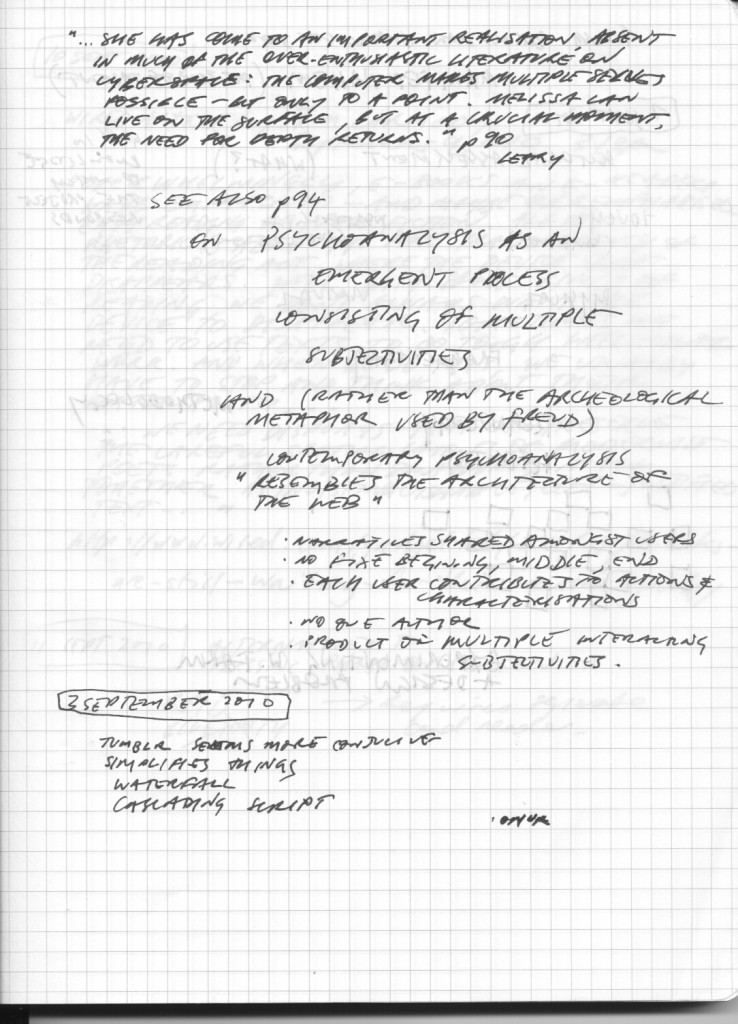 "... SHE HAS COME TO AN IMPORTANT REALISATION, ABSENT
IN MUCH OF THE OVER-ENTHUSIASTIC LITERATURE ON
CYBERSPACE: THE COMPUTER MAKES MULTIPLE SELVES
POSSIBLE - BUT ONLY TO A POINT. MELISSA CAN
LIVE ON THE SURFACE, BUT AT A CRUCIAL MOMENT,
THE NEED FOR DEPTH RETURNS." p90
LEARY
SEE ALSO p94
ON PSYCHOANALYSIS AS AN
EMERGENT PROCESS
CONSISTING OF MULTIPLE
SUBJECTIVITIES
AND (RATHER THAN THE ARCHEOLOGICAL
METAPHOR USED BY FREUD)
CONTEMPORARY PSYCHOANALYSIS
"RESEMBLES THE ARCHITECTURE OF
THE WEB"
· NARRATIVES SHARED AMONGST USERS
· NO FIXE BEGINING, MIDDLE, END
· EACH USER CONTRIBUTES TO ACTIONS &
CHARACTERISATIONS
· NO ONE AUTHOR
· PRODUCT OF MULTIPLE INTERACTING
SUBJECTIVITIES.
3 SEPTEMBER 2010
TUMBLR SEEMS MORE CONDUCIVE
SIMPLIFIES THINGS
WATERFALL
CASCADING SCRIPT